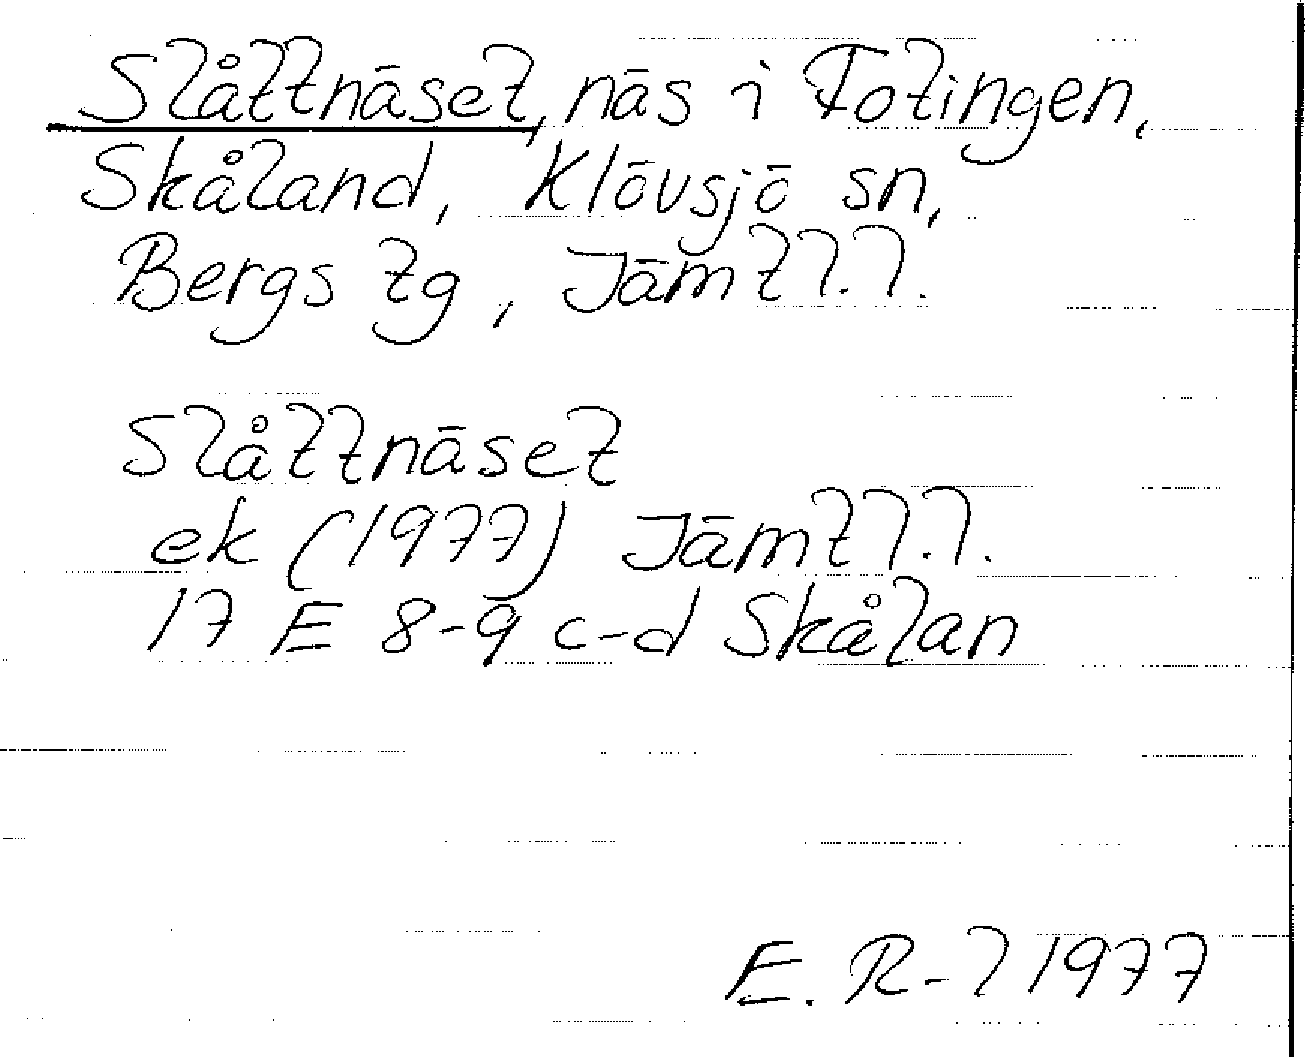 Slåttnäset, näs i Fotingen,
Skåland, Klövsjö sn,
Bergs tg, Jämtl.l.
Slåttnäset
ek (1977) Jämtl.l.
17 E 8-9 c-d Skålan
E. R-l 1977